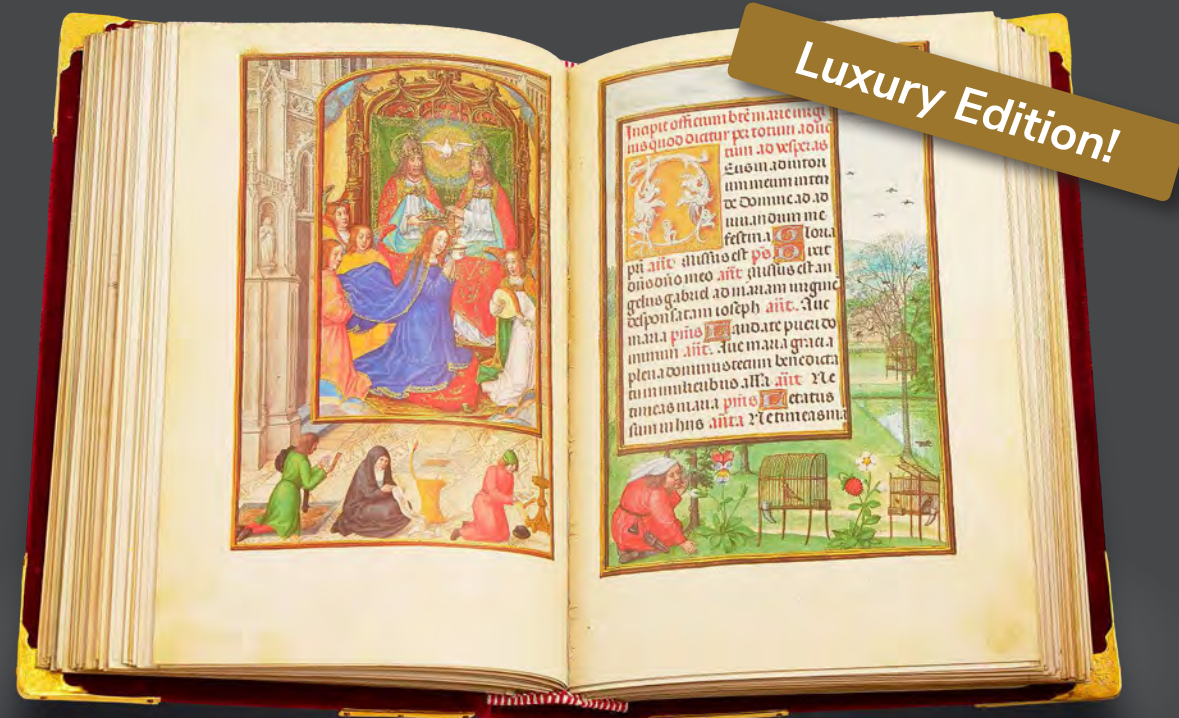 Luxury Edition!
Incipit officium bre marie virgi
nis quod dicitur per totum adue
tum ad vesperas
Eus in adiutori
um meum inten
de Domine ad ad
iuuandum me
festina G loria
pri añt Missus est ps D ixit
dñs dño meo añt Missus est an
gelus gabriel ad mariam virginē
desponsatam ioseph añt. Aue
maria pms L audate pueri do
minum añt. Aue maria gracia
plena dominus tecum benedicta
tu in mulieribus alla añt Ne
timeas maria pms L etatus
sum in hijs añta Ne timeas ma